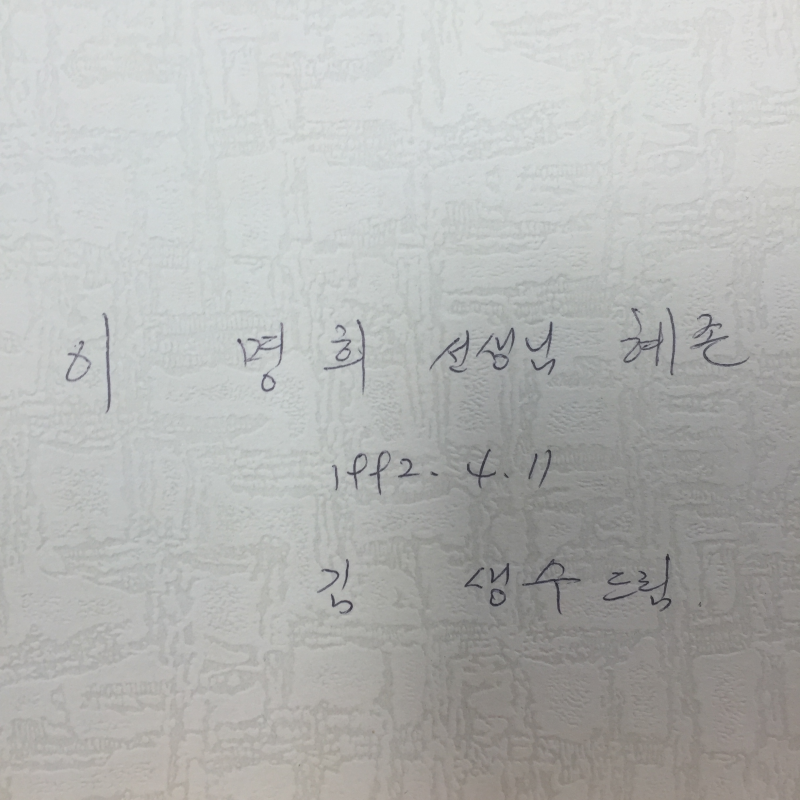 이 명희 선생님 혜존
1992. 4. 11
김 생수 드림.